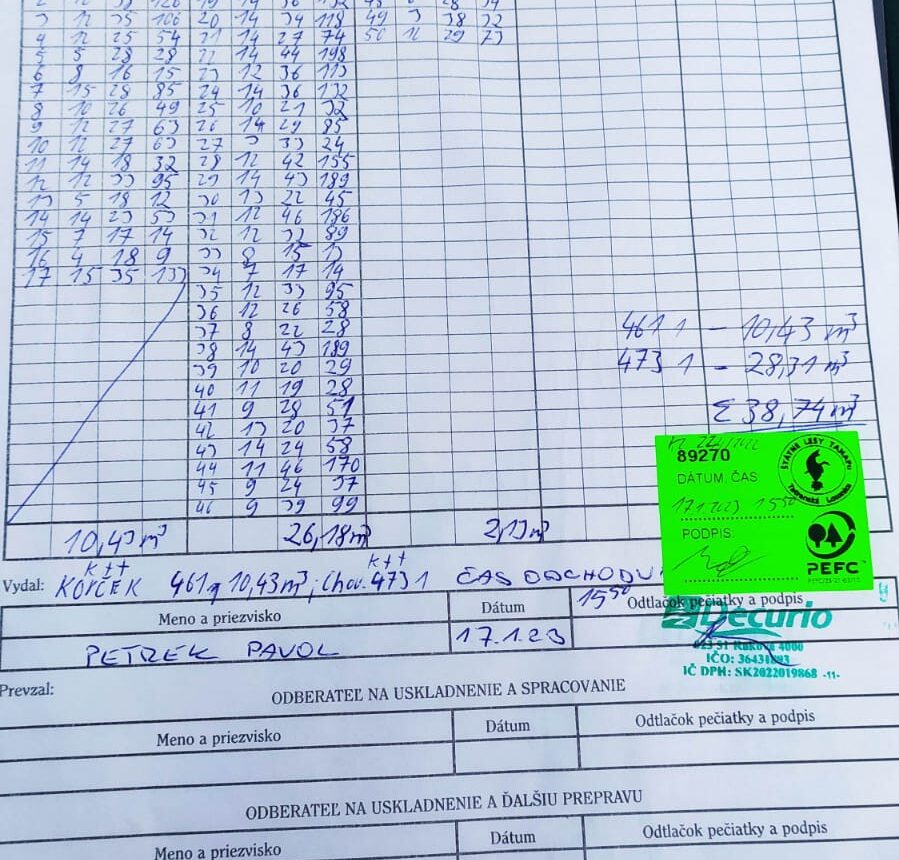 3 12 35 106 20 14 34 118 49 3 38 32
4 12 25 54 21 14 27 74 50 12 29 73
5 5 28 28 22 14 44 198
6 8 16 15 23 12 36 113
7 15 28 85 24 14 36 132
8 10 26 49 25 10 21 32
9 12 27 63 26 14 29 85
10 12 27 63 27 3 33 24
11 14 18 32 28 12 42 155
12 12 33 95 29 14 43 189
13 5 18 12 30 13 22 45
14 14 23 53 31 12 46 186
15 7 17 14 32 12 32 89
16 4 18 9 33 8 15 13
17 15 35 133 34 7 17 14
35 12 33 95
36 12 26 58
37 8 22 28
38 14 43 189
39 10 20 29
40 11 19 28
41 9 28 51
42 13 20 37
43 14 24 58
44 11 46 170
45 9 24 37
46 9 39 99
461 1 - 10,43 m³
473 1 - 28,31 m³
Σ 38,74 m³
89270
DÁTUM, ČAS
17.1.2023 15 50
PODPIS:
ŠTÁTNE LESY TANAPU
Tatranská Lomnica
PEFC
10,43 m³ 26,18 m³ 2,13 m³
Vydal: KORČEK 461 10,43 m³; Chov. 473 1 ČAS ODCHODU
k++ k++
15 50
Meno a priezvisko Dátum Odtlačok pečiatky a podpis
PETREK PAVOL 17.1.23
Decurio
023 51 Raková 4000
IČO: 36431893
IČ DPH: SK2022019868 -11-
Prevzal:
ODBERATEĽ NA USKLADNENIE A SPRACOVANIE
Meno a priezvisko Dátum Odtlačok pečiatky a podpis
ODBERATEĽ NA USKLADNENIE A ĎALŠIU PREPRAVU
Meno a priezvisko Dátum Odtlačok pečiatky a podpis